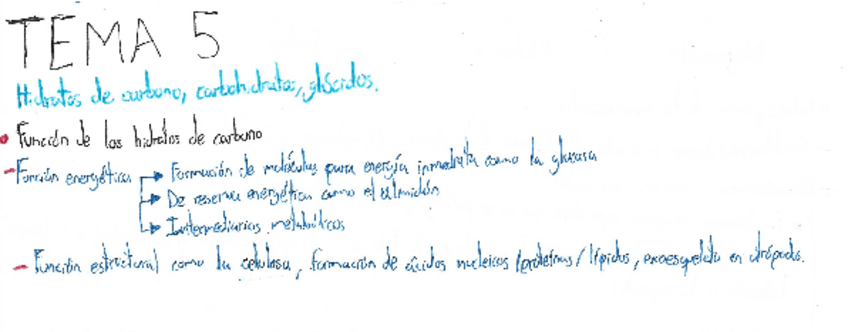 TEMA 5
Hidratos de carbono, carbohidratos, glúcidos.
• Función de los hidratos de carbono
- Función energética → Formación de moléculas para energía inmediata como la glucosa
→ De reserva energética como el almidón
→ Intermediarios metabólicos
- Función estructural como la celulosa, formación de ácidos nucleicos/proteínas/lípidos, exoesqueleto en artrópodos.